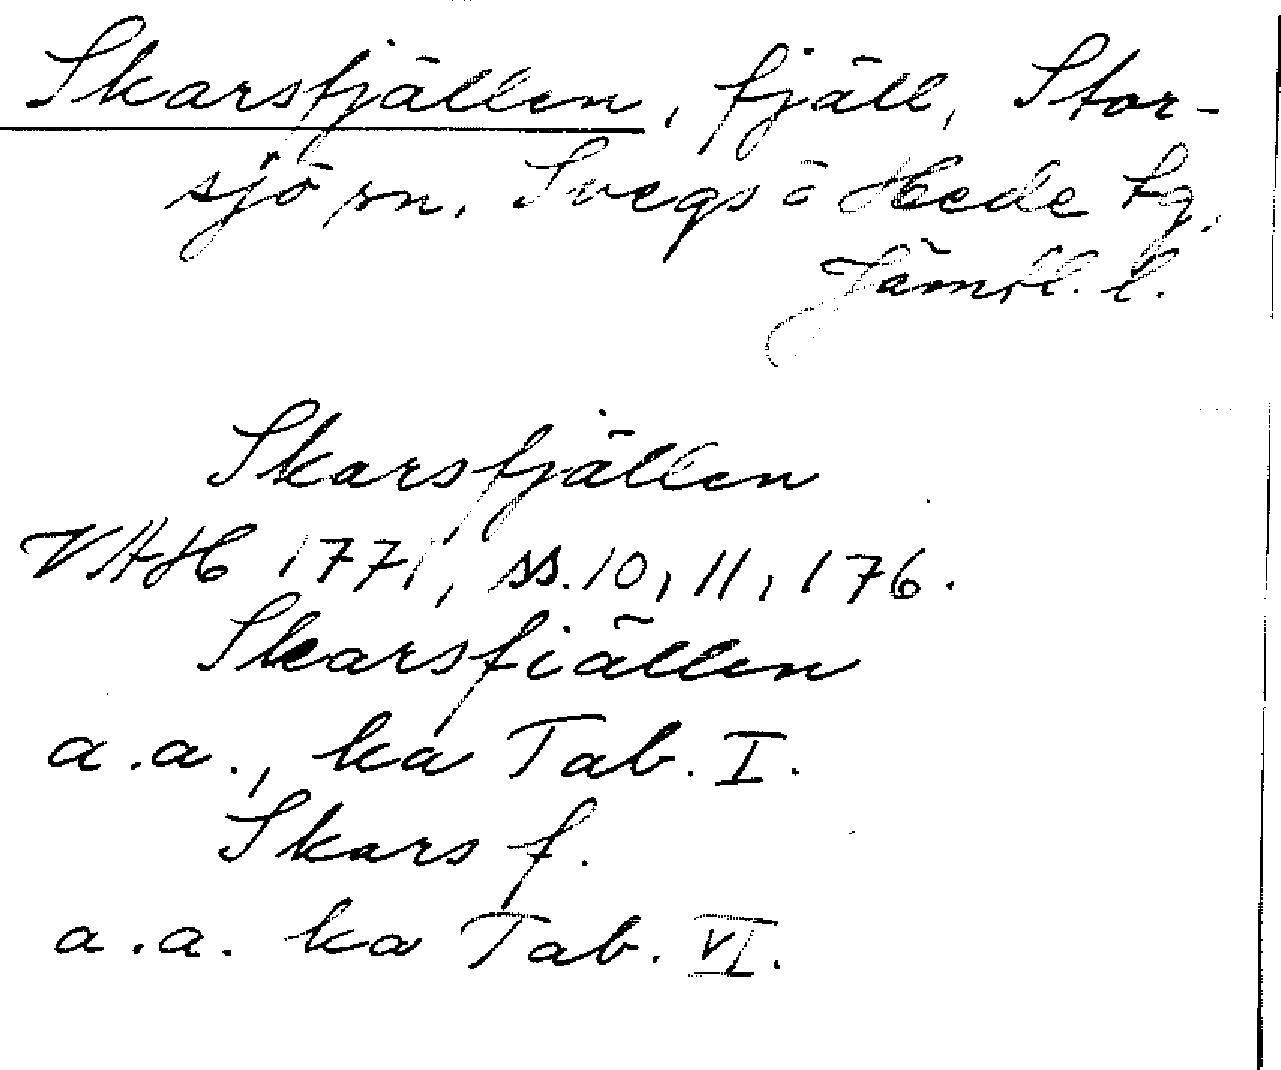 Skarsfjällen, fjäll, Stor-
sjö sn. Svegs o Hede tg.
Jämtl. l.
Skarsfjällen
VAH 1771, ss. 10, 11, 176.
Skarsfiällen
a.a., ka Tab. I.
Skars f.
a.a. ka Tab. VI.